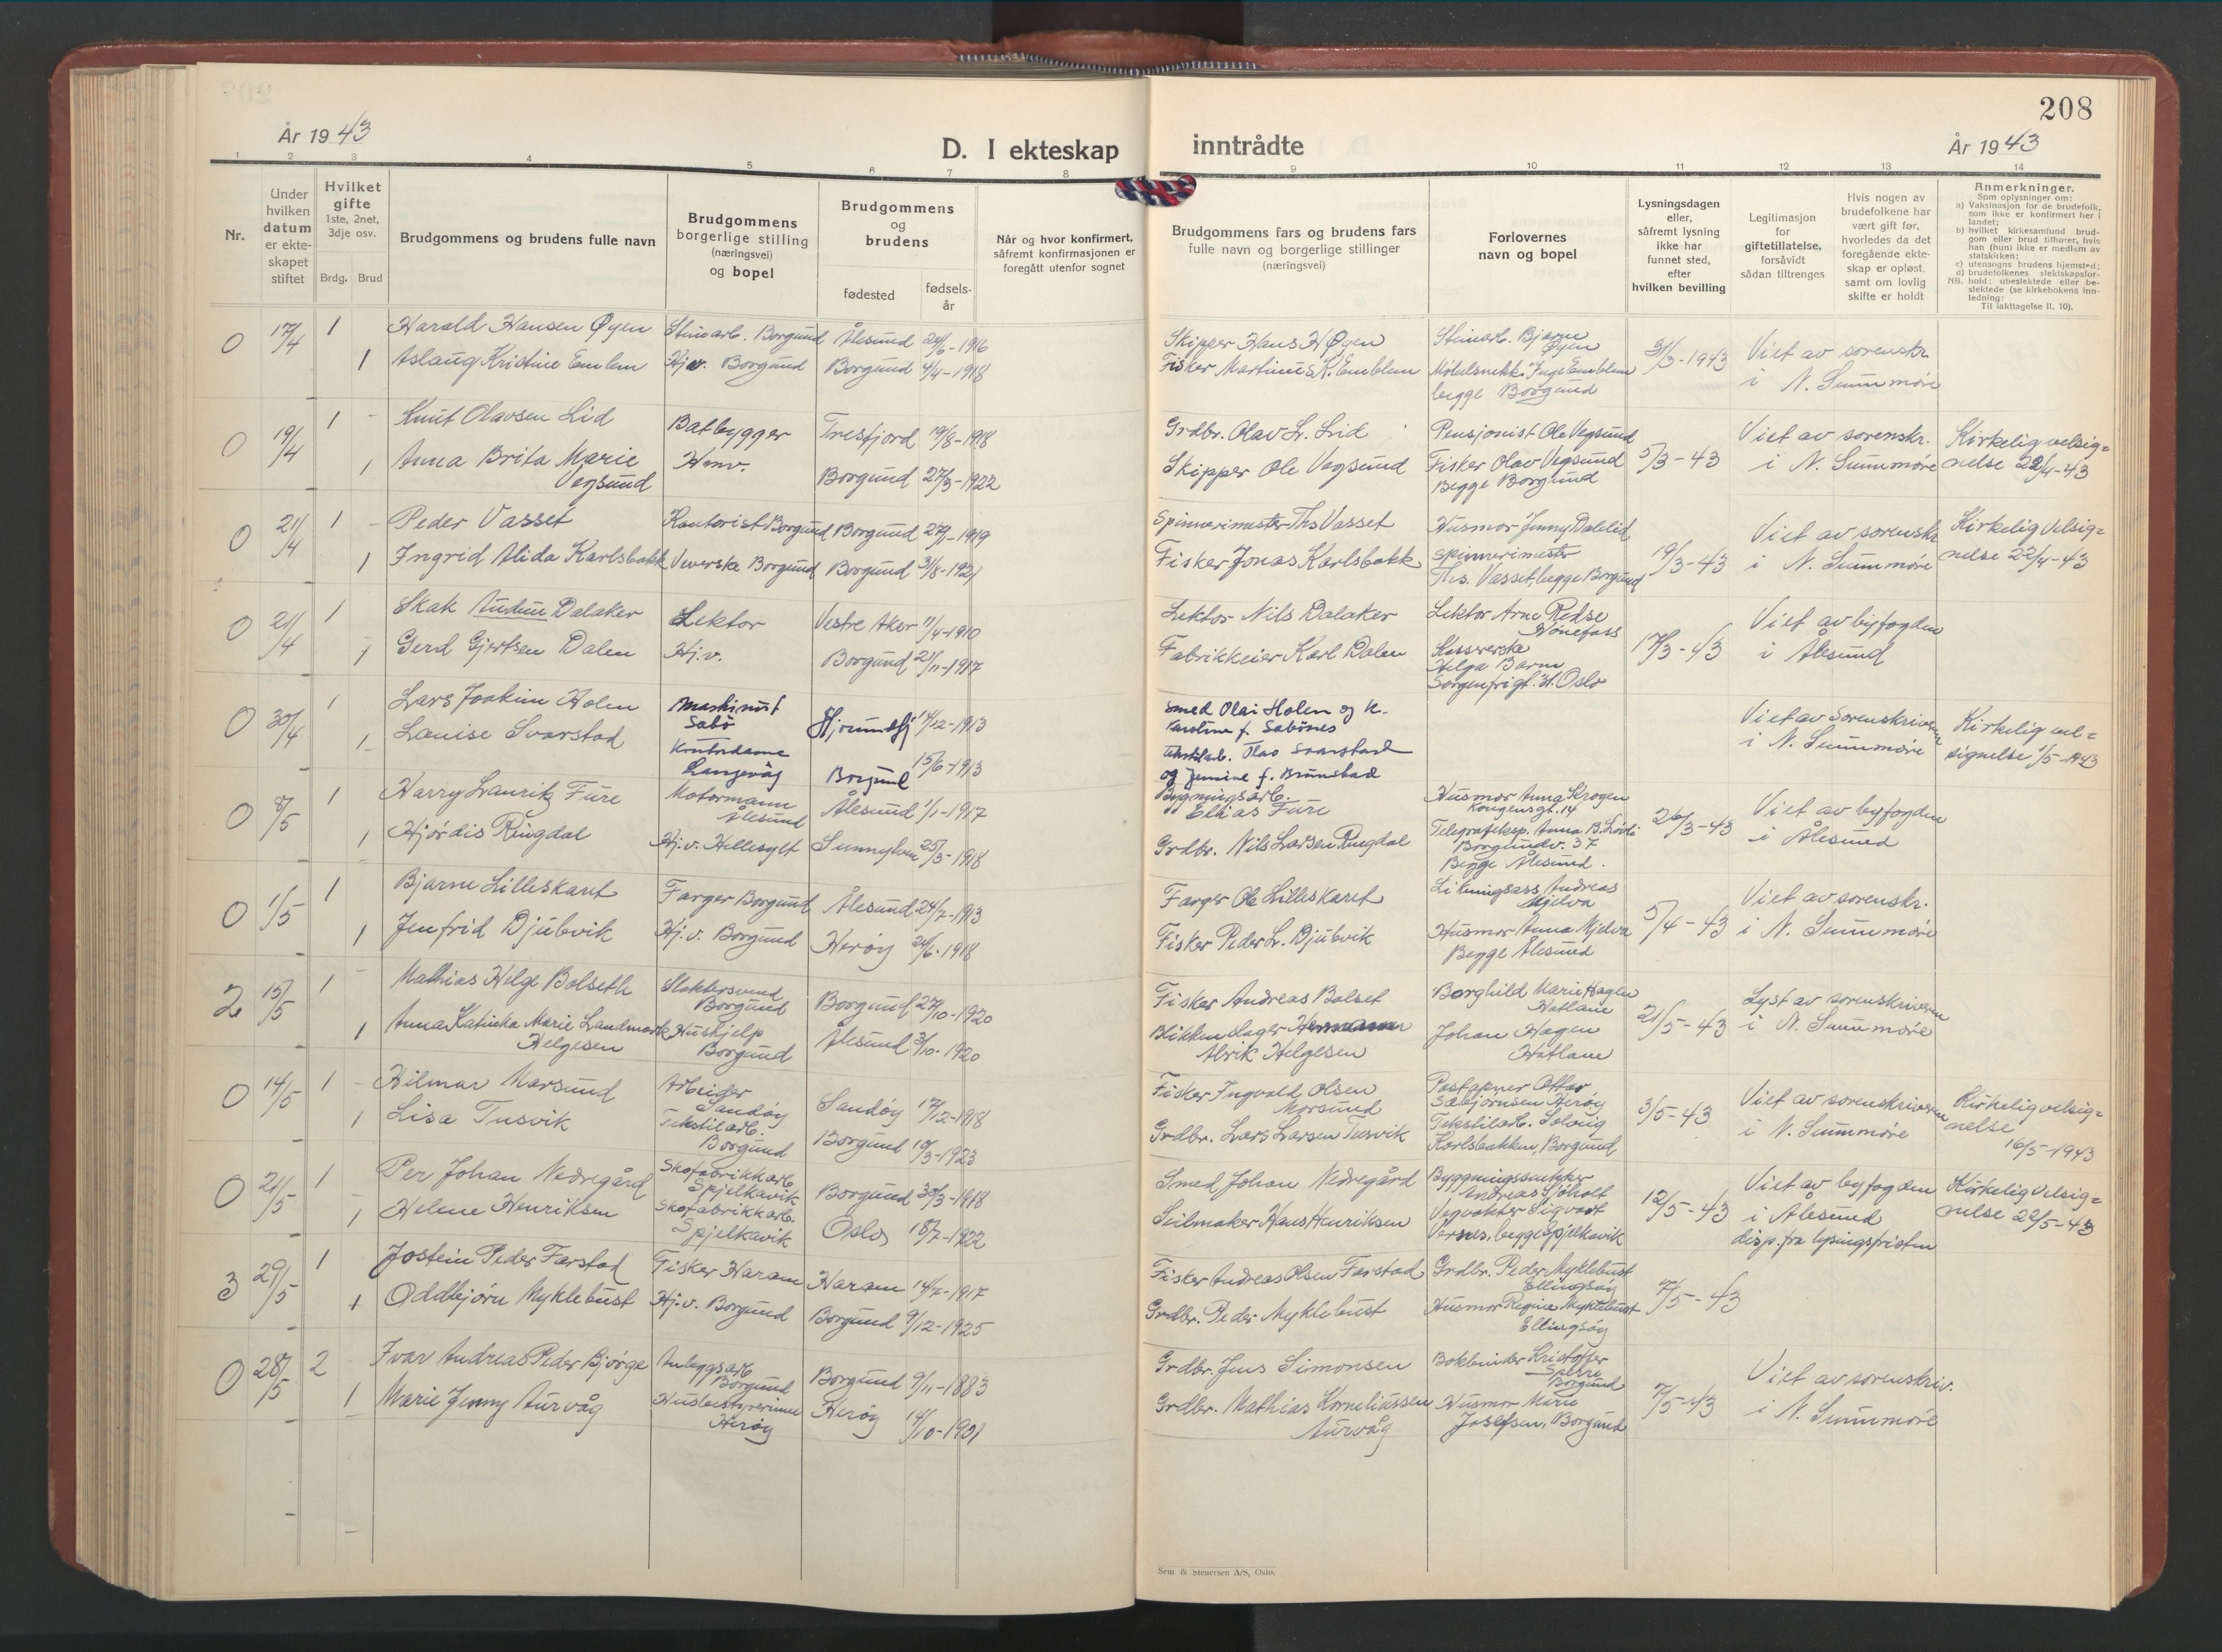 208
År 1943
D. I ekteskap inntrådte
År 1943
1 2 3 4 5 6 7 8 9 10 11 12 13 14
Nr.
Under
hvilken
datum
er ekte-
skapet
stiftet
Hvilket
gifte
1ste, 2net,
3dje osv.
Brdg. Brud
Brudgommens og brudens fulle navn
Brudgommens
borgerlige stilling
(næringsvei)
og bopel
Brudgommens
og
brudens
fødested
fødsels-
år
Når og hvor konfirmert,
såfremt konfirmasjonen er
foregått utenfor sognet
Brudgommens fars og brudens fars
fulle navn og borgerlige stillinger
(næringsvei)
Forlovernes
navn og bopel
Lysningsdagen
eller,
såfremt lysning
ikke har
funnet sted,
efter
hvilken bevilling
Legitimasjon
for
giftetillatelse,
forsåvidt
sådan tiltrenges
Hvis nogen av
brudefolkene har
vært gift før,
hvorledes da det
foregående ekte-
skap er opløst.
samt om lovlig
skifte er holdt
Anmerkninger.
Som oplysninger om:
a) Vaksinasjon for de brudefolk,
som ikke er konfirmert her i
landet;
b) hvilket kirkesamfund brud-
gom eller brud tilhører, hvis
han (hun) ikke er medlem av
statskirken;
c) utensogns brudens hjemsted;
d) brudefolkenes slektskapsfor-
hold: ubeslektede eller be-
slektede (se kirkebokens inn-
ledning:
NB. Til iakttagelse II. 10).
0 17/4 1 Harald Hansen Øyen Steinarb. Borgund Ålesund 24/6-1916 Skipper Hans H Øyen Steinarb. Bjarne Øyen
1 Aslaug Kristine Emblem Hj.v. Borgund Borgund 4/4-1918 Fisker Martinus K. Emblem Møbelsnekk. Inge Emblem
begge Borgund
31/3-1943 Viet av sorenskr.
i N. Sunnmøre
0 19/4 1 - Knut Olavsen Lid Båtbygger Tresfjord 19/8-1918 Grdbr. Olav L. Lid Pensjonist Ole Vegsund
1 Anna Brita Marie Vegsund Hmv. Borgund 27/3-1922 Skipper Ole Vegsund Fisker Olav Vegsund
Begge Borgund
5/3-43 Viet av sorenskr.
i N. Sunnmøre
Kirkelig velsig=
nelse 22/4-43
0 21/4 1 - Peder Vasset Kontorist Borgund Borgund 1919 Spinnerimester Ths Vasset Husmor Jenny Dalelid
1 Ingrid Alida Karlsbakk Veverske Borgund Borgund 31/8-1921 Fisker Jonas Karlsbakk Spinnerimester
Ths. Vasset, begge Borgund
19/3-43 Viet av sorenskr
i N. Sunnmøre
Kirkelig velsig=
nelse 22/4-43
0 21/4 1 Skak Audun Dalaker Lektor Vestre Aker 11/4-1910 Lektor Nils Dalaker Lektor Arne Redse
Hønefoss
1 Gerd Gjertsen Dalen Hj.v. Borgund 21/11-1917 Fabrikkeier Karl Dalen Kasserske
Helga Barm
Sorgenfrigt. 31. Oslo
17/3-43 Viet av byfogden
i Ålesund
0 30/4 1 Lars Joakim Holen Maskinist
Sæbø Hjørundfj 14/12-1913 Smed Olai Holen og k.
Karoline f. Sæbønes
1 Lauise Svarstad Kontordame
Langevåg Borgund 15/6-1913 Olav Svarstad
og Jemine f. Brunstad
Viet av Sorenskriveren
i N. Sunnmøre
Kirkelig vel=
signelse 1/5-1943
0 8/5 1 Harry Lauritz Fure Motormann
Ålesund Ålesund 1/1-1917 Bygningsarb.
Elias Fure Husmor Anna Krogen
Kongensgt. 14
1 Hjørdis Ringdal Hj.v. Hellesylt Sunnylven 25/3-1918 Grdbr. Nils Larsen Ringdal Telegrafeksp. Anna B.
Borgundv. 37
Begge Ålesund.
26/3-43 Viet av byfogden
i Ålesund
0 1/5 1 Bjarne Lilleskaret Farger Borgund Ålesund 24/7-1913 Farger Ole Lilleskaret Likningsass. Andreas
Mjelva
1 Jenfrid Djubvik Hj.v. Borgund Herøy 24/6-1918 Fisker Peder L. Djubvik Husmor Anna Mjelva
Begge Ålesund
5/4-43 Viet av sorenskr.
i N. Sunnmøre
2 15/5 1 Mathias Helge Bolseth Slaktersvend
Borgund Borgund 27/10-1920 Fisker Andreas Bolset Borghild Marie Hagen
Hatlane
1 Anna Katinka Marie Landmark
Helgesen Hushjelp
Borgund Ålesund 3/10-1920 Blikkenslager Hermann
Alvik Helgesen Johan Hagen
Hatlane
21/5-43 Lyst av sorenskriveren
i N. Sunnmøre
0 14/5 1 - Hilmar Marsund Arbeider
Sandøy Sandøy 17/12-1918 Fisker Ingvald Olsen
Marsund Poståpner Ottar
Sæbjørnsen Herøy
1 Lisa Tusvik Tekstilarb.
Borgund Borgund 10/3-1923 Grdbr. Lars Larsen Tusvik Tekstilarb. Solveig
Karlsbakken, Borgund
3/5-43 Viet av sorenskriveren
i N. Sunnmøre
Kirkelig velsig=
nelse
16/5-1943
0 21/5 1 Per Johan Nedregård Skofabrikkarb
Spjelkavik Borgund 30/3-1918 Smed Johan Nedregård Byggningssnekker
Andreas Sjøholt
1 Helene Henriksen Skofabrikkarb.
Spjelkavik Oslo 18/7-1922 Seilmaker Hans Henriksen Vegvokter Sigvart
Versnes, begge Spjelkavik
12/5-43 Viet av byfogden
i Ålesund
disp. fra lysingsfristen
Kirkelig velsig=
nelse 22/5-43
3 29/5 1 Jostein Peder Farstad Fisker Haram Haram 14/7-1917 Fisker Andreas Olsen Farstad Grdbr. Peder Myklebust
Ellingsøy
1 Oddbjørn Myklebust Hj.v. Borgund Borgund 9/12-1925 Grdbr. Peder Myklebust Husmor Regine Myklebust
Ellingsøy
7/5-43
0 28/5 2 Ivar Andreas Peder Bjørge Anleggsarb
Borgund Borgund 9/11-1883 Grdbr. Jens Simonsen Bokbinder Kristoffer
Sperre
Borgund
1 Marie Jenny Aurvåg Husbestyrerinne
Herøy Herøy 14/10-1901 Grdbr. Mathias Korneliussen
Aurvåg Husmor Marie
Josefsen, Borgund
7/5-43 Viet av sorenskriv.
i N. Sunnmøre
Sem & Stenersen A/S, Oslo.